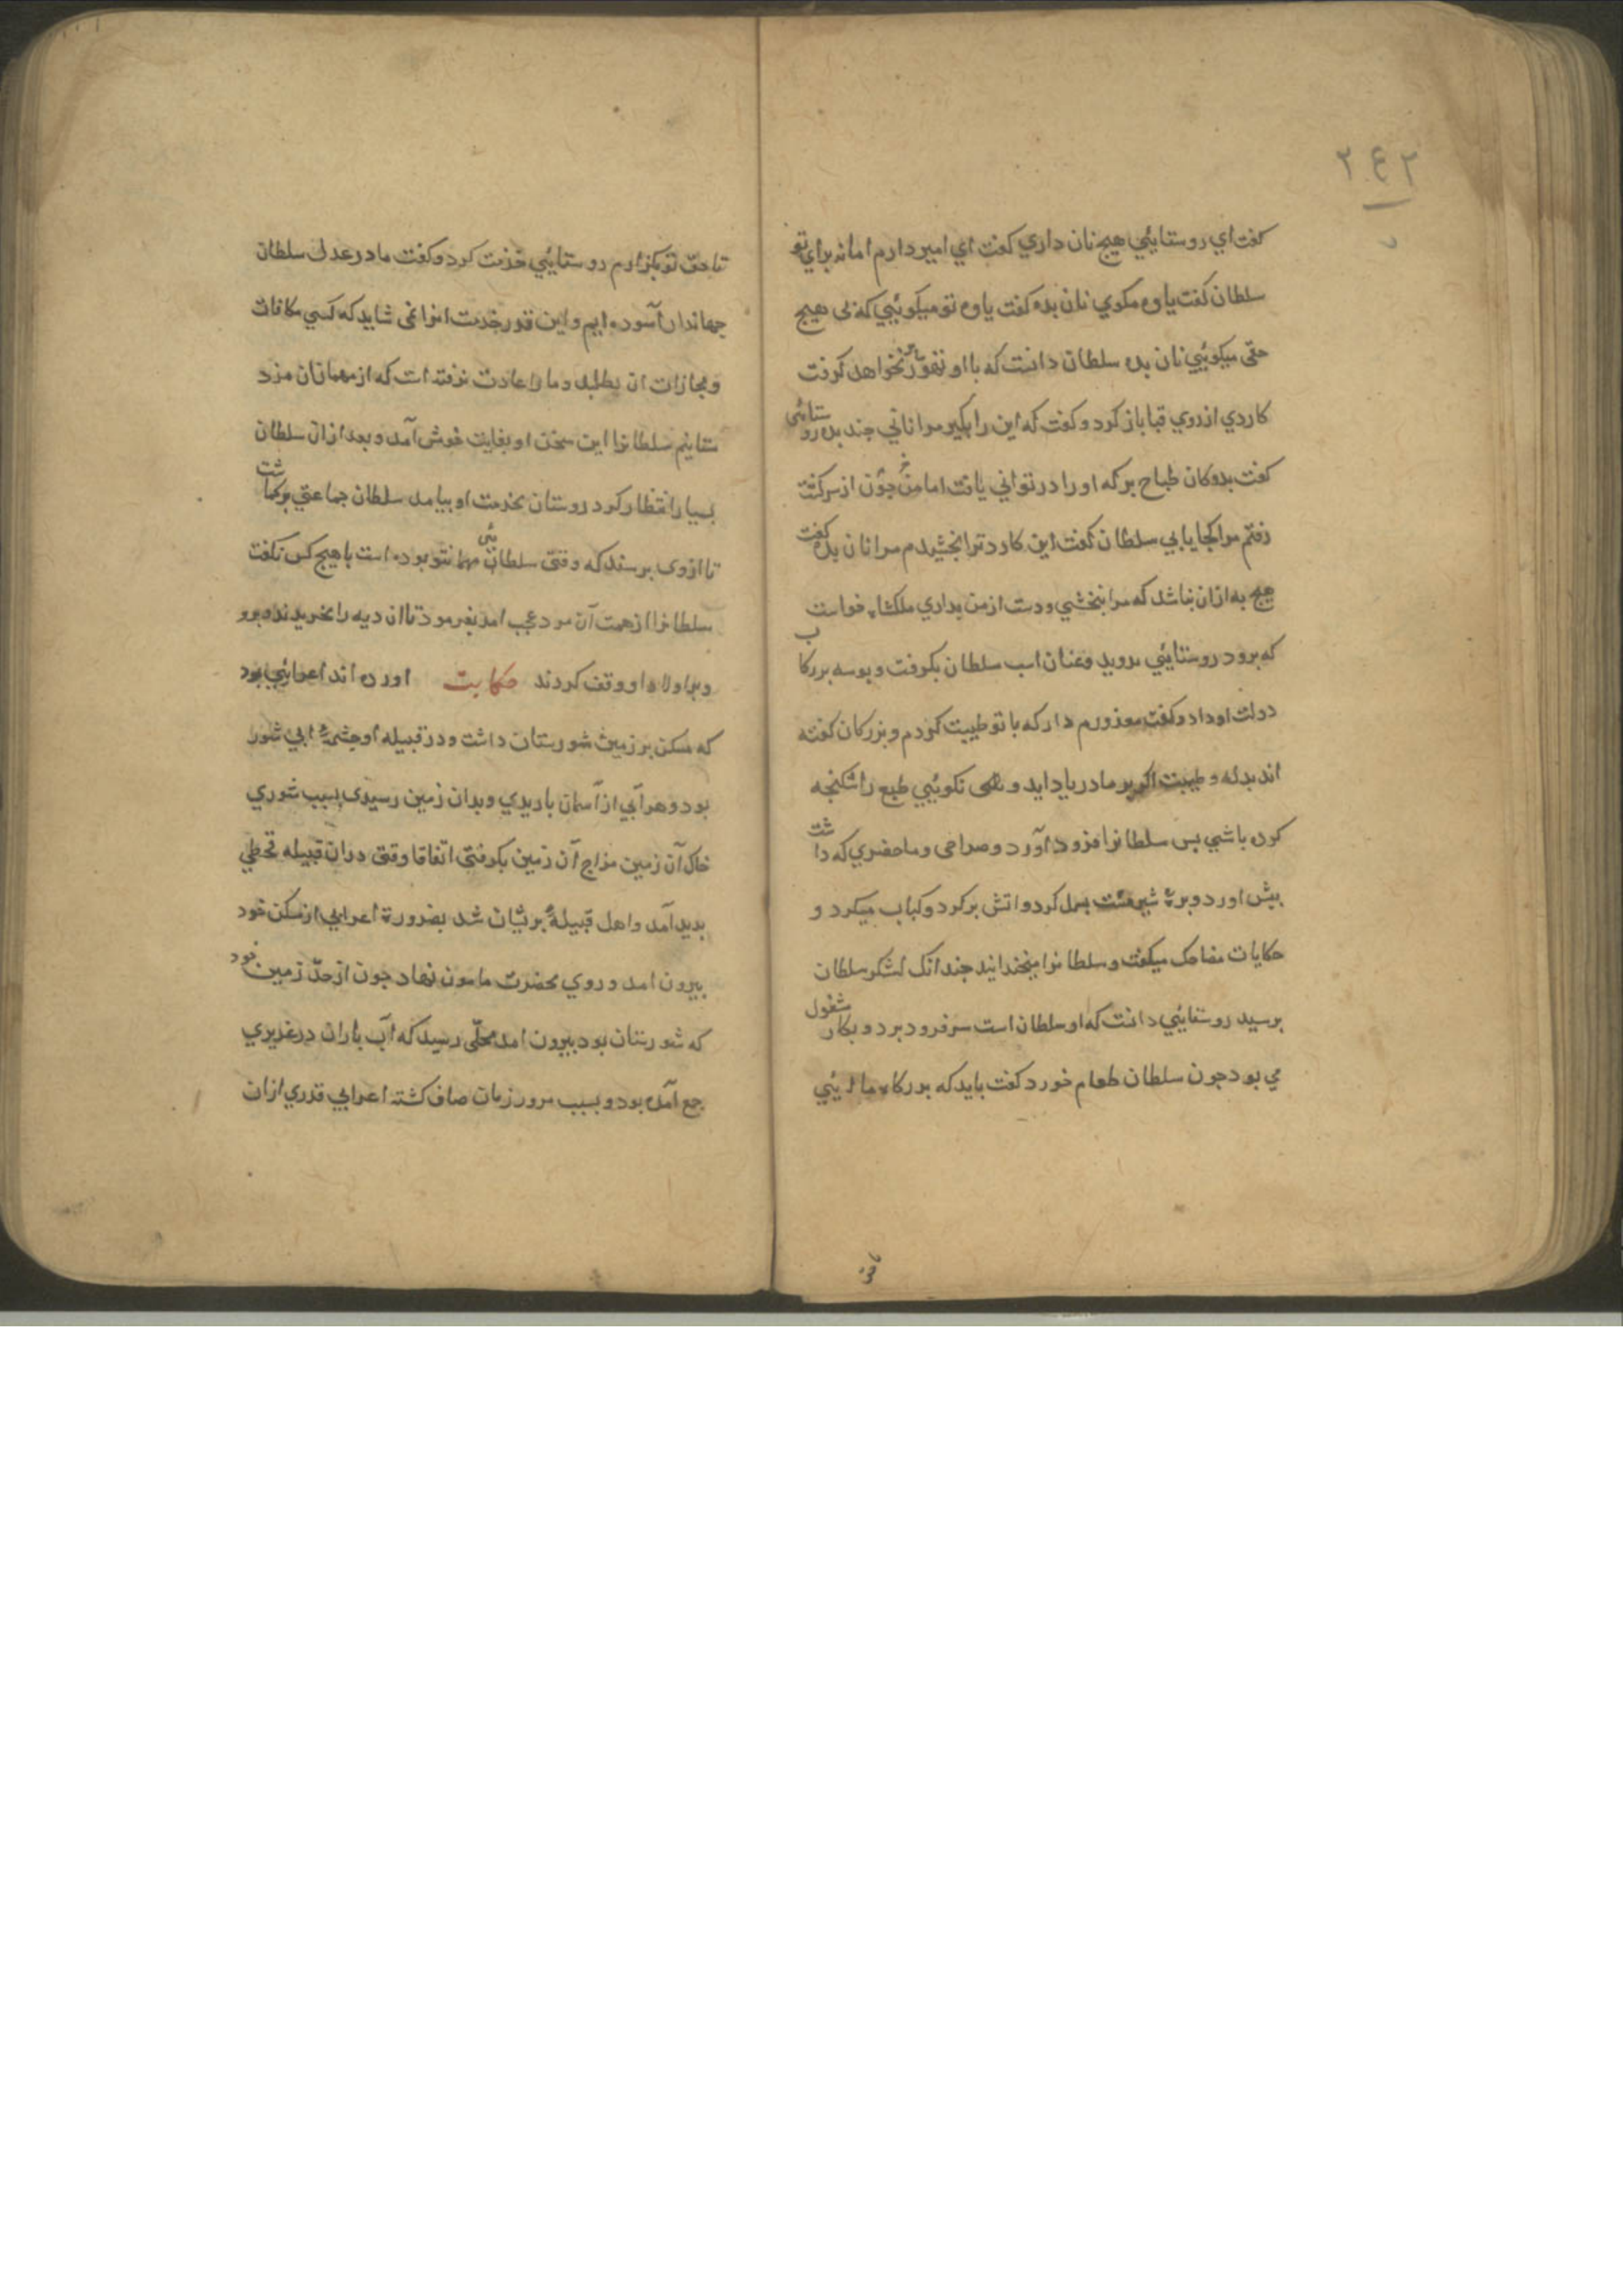 ۲۴۲
گفت ای روستایئي هیچ نان داري گفت اي امیر دارم اما نه براي تو
سلطان کفت یاوه مکوي نان بده کفت یاوه تو میکویئي که بی هیچ
حقی میکویئي نان بده سلطان دانست که با او بنخواهد کرفت
کاردي از روي قبا باز کرد و کفت که این را بکیر مرا نانی چند بده روستایئی
کفت بدوکان طباخ برکه او را در توانی یافت اما من چون از سر کشت
رفتم مرا کجا یابي سلطان کفت این کارد ترا بخشیدم مرا نان بده کفت
هیچ به ازان نباشد که مرا بخشي و دست از من بداري ملکشاه خواست
که برود روستایئي بدوید و عنان اسب سلطان بکرفت و بوسه بر رکاب
دولت او داد و کفت معذورم دار که با تو طیبت کردم و بزرکان کفته
اند بذله و طیبت اکر بر مادر یاد اید و نکویئي طبع را شکنجه
کرده باشي بس سلطانرا فرود آورد و صراحی و ماحضري که داشت
پیش اورد و برۀ شیرمست بسمل کرد و اتش برکرد و کباب میکرد و
حکایات مضاحک میکفت و سلطانرا میخندانید چندانک لشکر سلطان
برسید روستایئي دانست که او سلطان است سر فرود برد و بکار مشغول
مي بود چون سلطان طعام خورد کفت باید که بدرکاه ما ایئي
تا حق تو بکزارم روستایئي خدمت کرد و کفت ما در عدل سلطان
جهاندار آسوده ایم و این قدر خدمت انرا نمی شاید که کسي مکافات
و مجازات ان بطلبد و ما را عادت نرفته است که از مهمانان مزد
ستانیم سلطانرا این سخن او بغایت خوش آمد و بعد ازان سلطان
بسیار انتظار کرد روستان بخدمت او نیامد سلطان جماعتي برکماشت
تا ازوی برسند که وقتی سلطان مهمانئی تو بوده است با هیچ کس نکفت
سلطانرا از همت آن مرد عجب امد بفرمود تا ان دیه را بخریدند و برو
و بر اولاد او وقف کردند حکایت اورده اند اعرابئي بود
که مسکن بر زمین شورستان داشت و در قبیله او چشمۀ ابي شور
بود و هر آبي از آسمان باریدي و بدان زمین رسیدی بسبب شوري
خاک آن زمین مزاج آن زمین بکرفتی اتفاقا وقتی دران قبیله قحطي
بدید آمد و اهل قبیله بریشان شد بضرورة اعرابي از مسکن خود
بیرون امد و روي بحضرت مامون نهاد چون از حدّ زمین خود
که شورستان بود بیرون امد بمحلّی رسید که آب باران در غدیري
جمع آمده بود و بسبب مرور زمان صاف کشته اعرابي قدري ازان
تا حق